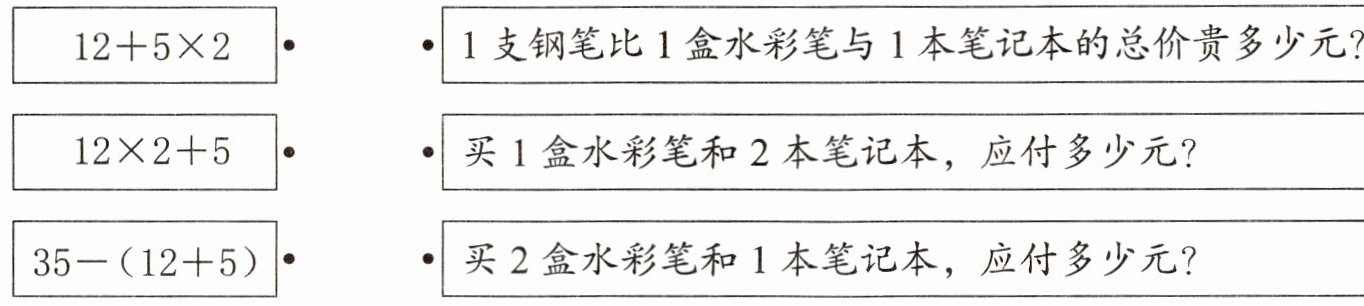 12+5×2
1支钢笔比1盒水彩笔与1本笔记本的总价贵多少元?
12×2+5
买1盒水彩笔和2本笔记本，应付多少元?
35-(12+5)
买2盒水彩笔和1本笔记本，应付多少元?